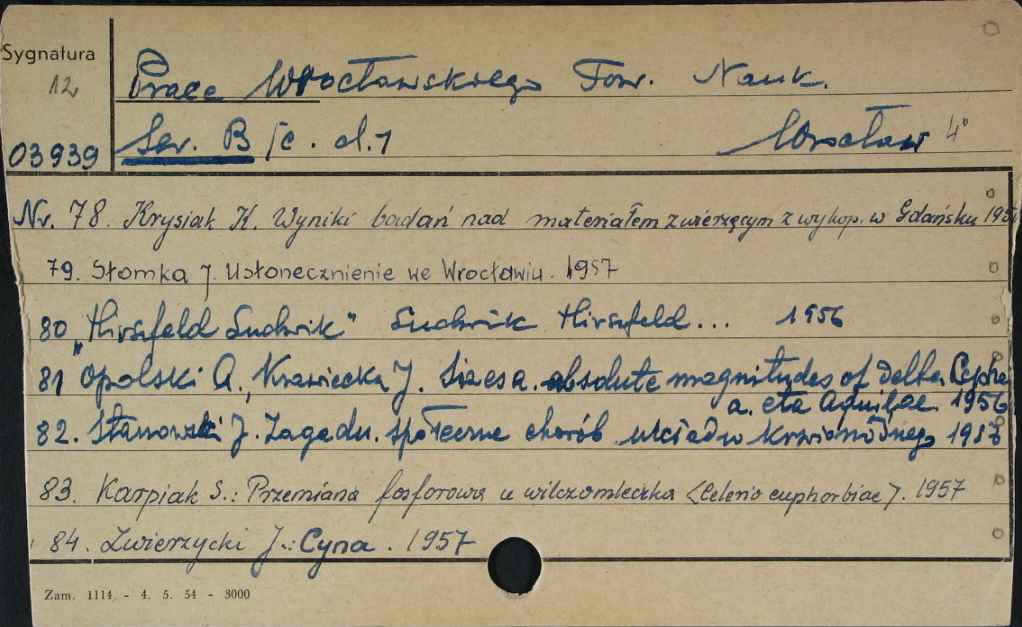 Sygnatura
12
Prace Wrocławskiego Tow. Nauk.
03939
Ser. B /c. d.1 Wrocław 4°
Nr. 78. Krysiak K. Wyniki badań nad materiałem zwierzęcym z wykop. w Gdańsku
79. Słomka J. Usłonecznienie we Wrocławiu. 1957
80 „Hirszfeld Ludwik" Ludwik Hirszfeld... 1956
81 Opolski A., Krawiecka J. Sizes a. absolute magnitudes of delta Cephe
a. eta Aquilae. 1956
82. Stanowski J. Zagadn. społeczne chorób układu krwionośnego 1956
83. Karpiak S.: Przemiana fosforowa u wilczomleczka (Celerio euphorbiae). 1957
84. Zwierzycki J.: Cyna. 1957
Zam. 1114 - 4. 5. 54 - 3000